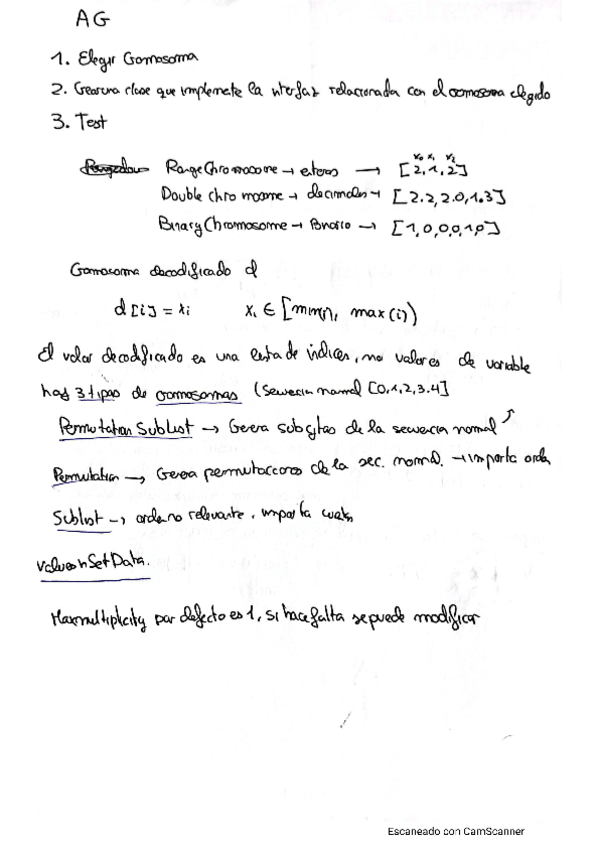 AG
1. Elegir Cromosoma
2. Crear una clase que implemente la interfaz relacionada con el cromosoma elegido
3. Test
RangeChromosome → enteros → [2,1,2]
x₀ x₁ x₂
DoubleChromosome → decimales → [2.2, 2.0, 1.3]
BinaryChromosome → Binario → [1,0,0,0,1,0]
Cromosoma decodificado d
d[i] = xi    xi ∈ [min(i), max(i))
El valor decodificado es una lista de índices, no valores de variable
hay 3 tipos de cromosomas (Secuencia normal [0,1,2,3,4]
Permutation SubList → Genera subcjtos de la secuencia normal
Permutation → Genera permutaciones de la sec. normal. → importa orden
Sublist → orden no relevante, importa
ValuesInSetData.
Maxmultiplicity por defecto es 1, si hace falta se puede modificar
Escaneado con CamScanner